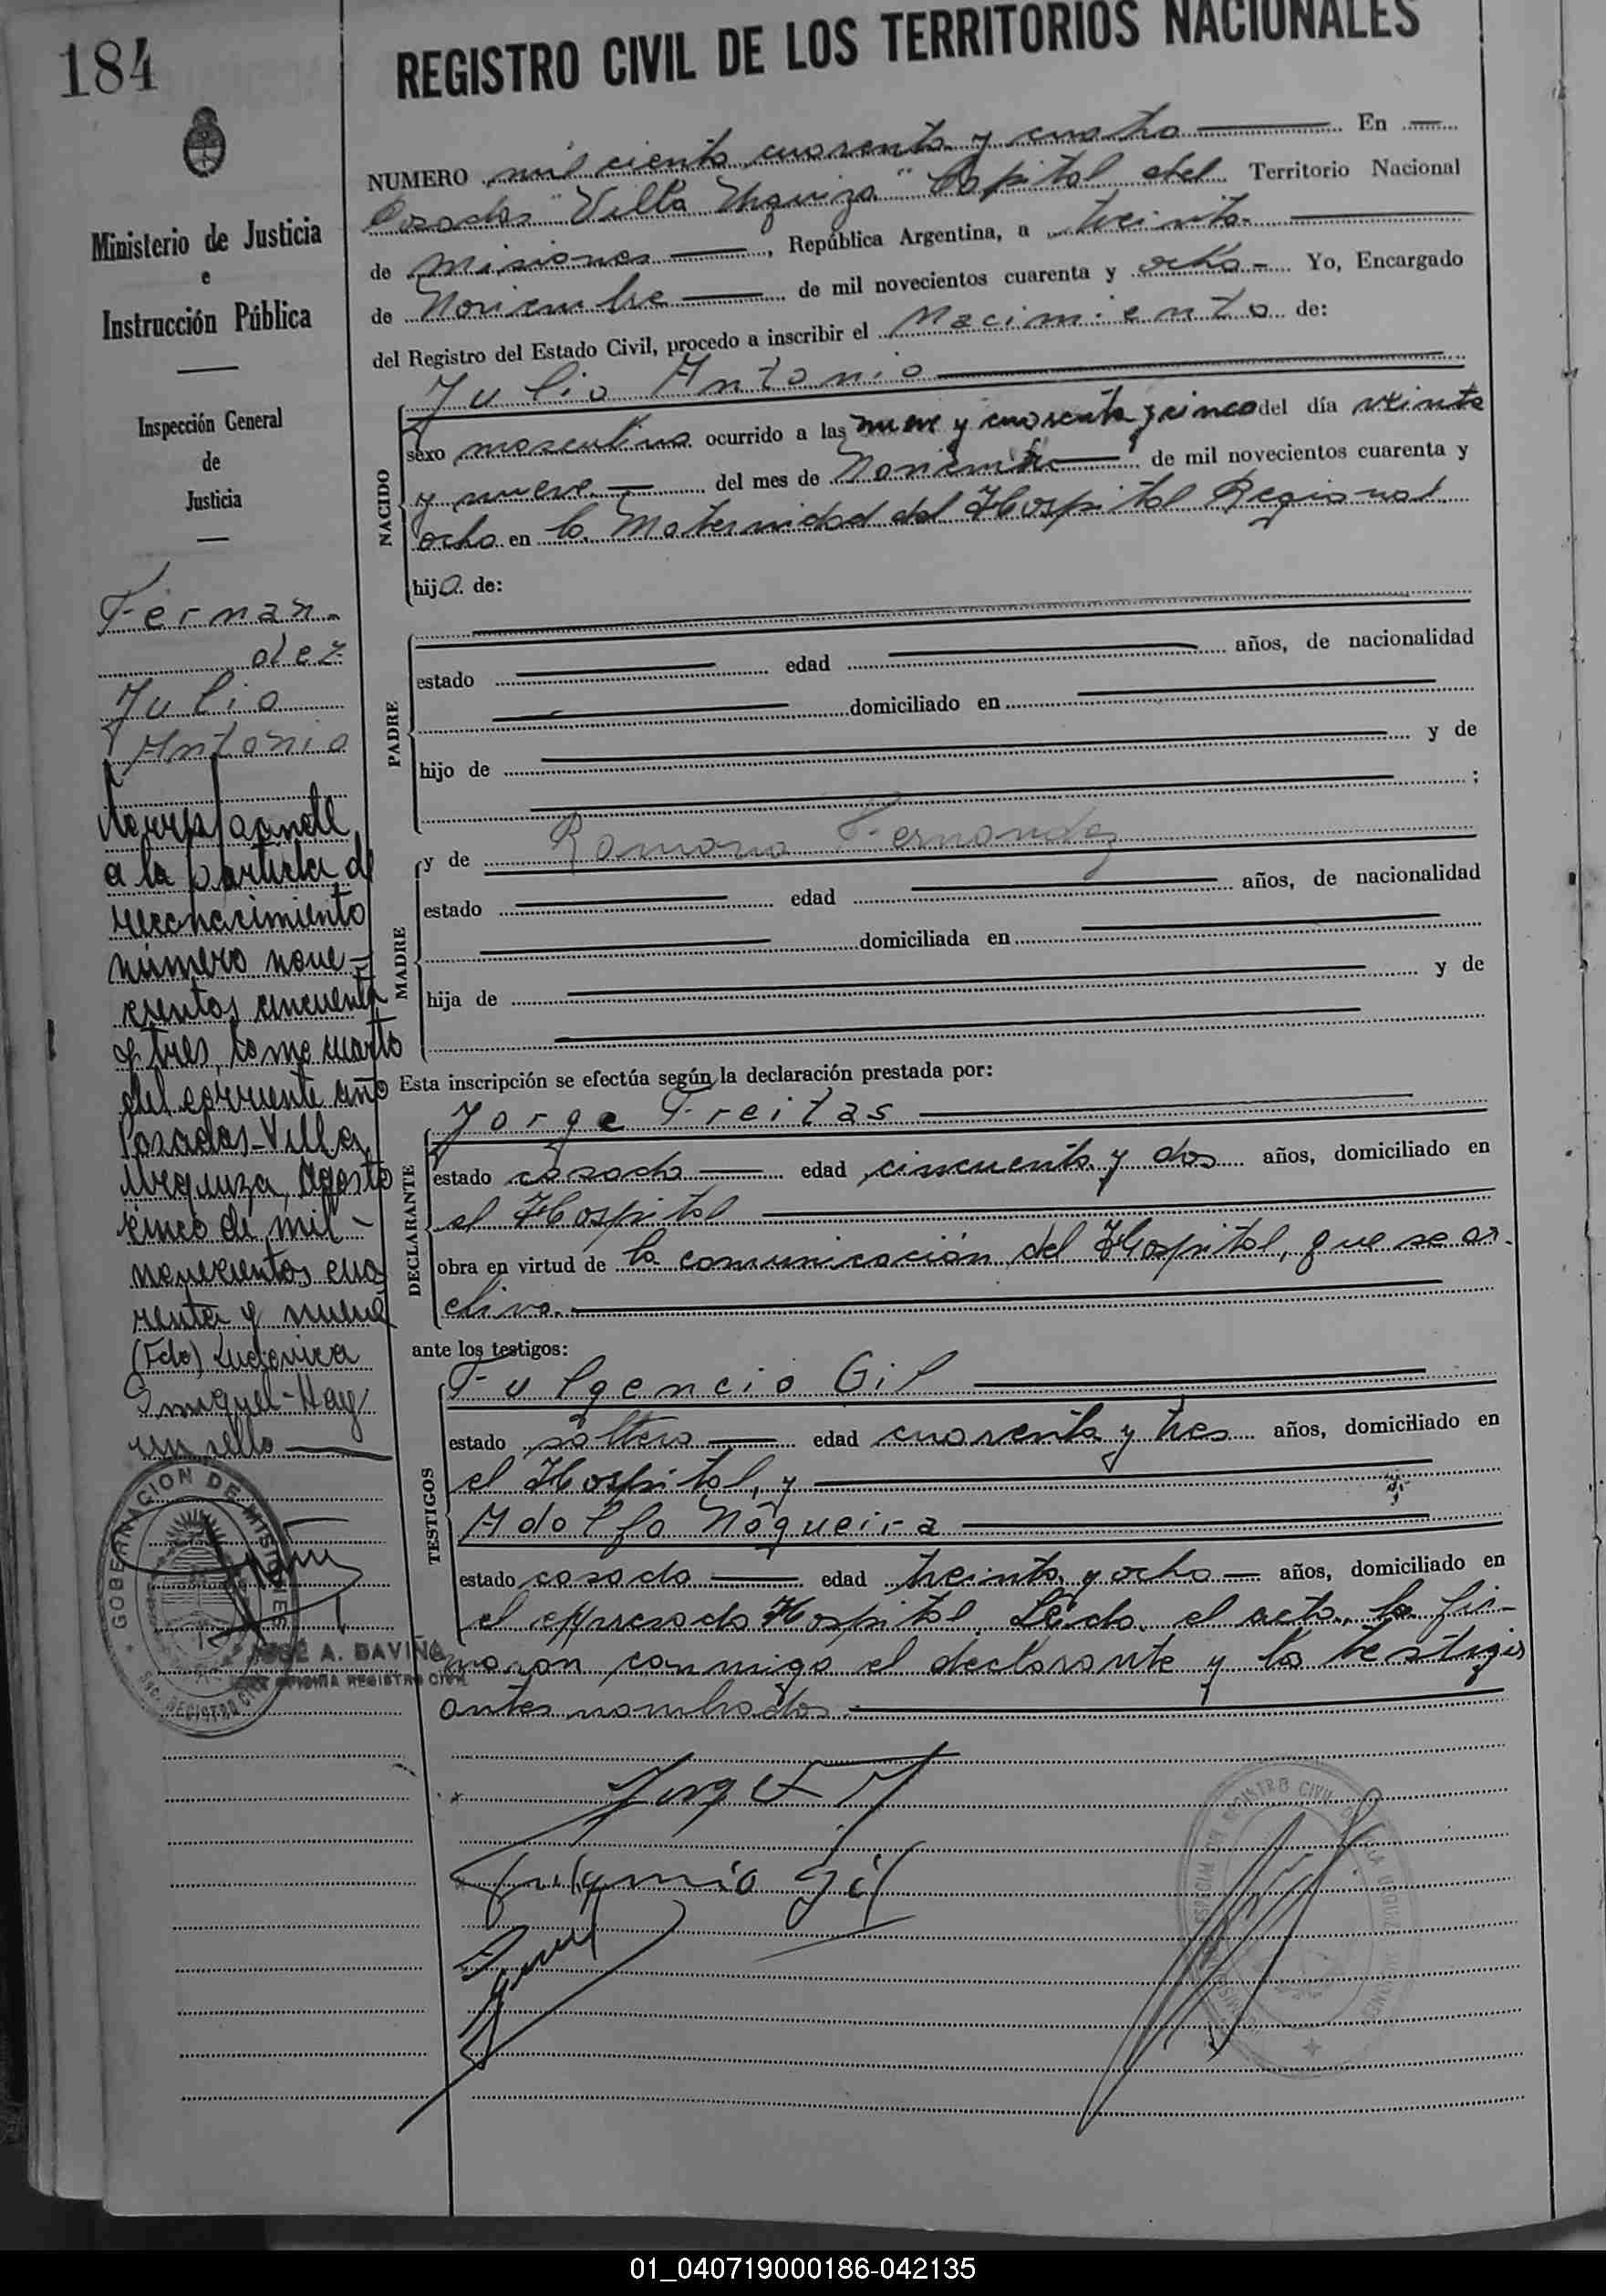 184
REGISTRO CIVIL DE LOS TERRITORIOS NACIONALES
Ministerio de Justicia
e
Instrucción Pública
Inspección General
de
Justicia
Fernan-
dez
Julio
Antonio
Corresponde
a la partida de
reconocimiento
número nove-
cientos cincuenta
y tres, tomo cuarto
del corriente año
Posadas-Villa
Urquiza, Agosto
cinco de mil
novecientos cua
renta y nueve
(Fdo) Ludovica
miguel-Hay
un sello
GOBERNACION DE MISIONES
SEC. REGISTRO CIVIL
JOSÉ A. DAVIÑA
OFICINA REGISTRO CIVIL
NUMERO mil ciento cuarenta y cuatro En
Posadas "Villa Urquiza" Capital del Territorio Nacional
de Misiones, República Argentina, a treinta
de Noviembre de mil novecientos cuarenta y ocho Yo, Encargado
del Registro del Estado Civil, procedo a inscribir el Nacimiento de:
Julio Antonio
NACIDO
sexo masculino ocurrido a las nueve y cuarenta y cinco del día veinte
y nueve del mes de Noviembre de mil novecientos cuarenta y
ocho en la Maternidad del Hospital Regional
hijo de:
PADRE
estado edad años, de nacionalidad
domiciliado en
hijo de y de
;
MADRE
y de Ramona Fernandez
estado edad años, de nacionalidad
domiciliada en
hija de y de
Esta inscripción se efectúa según la declaración prestada por:
DECLARANTE
Jorge Freitas
estado casado edad cincuenta y dos años, domiciliado en
el Hospital
obra en virtud de la comunicación del Hospital, que se ar-
chiva.
ante los testigos:
TESTIGOS
Fulgencio Gil
estado soltero edad cuarenta y tres años, domiciliado en
el Hospital, y
Adolfo Nogueira
estado casado edad treinta y ocho años, domiciliado en
el expresado Hospital. Leida el acta, la fir-
maron conmigo el declarante y los testigos
antes nombrados.
Jorge F
Fulgencio Gil
01_040719000186-042135